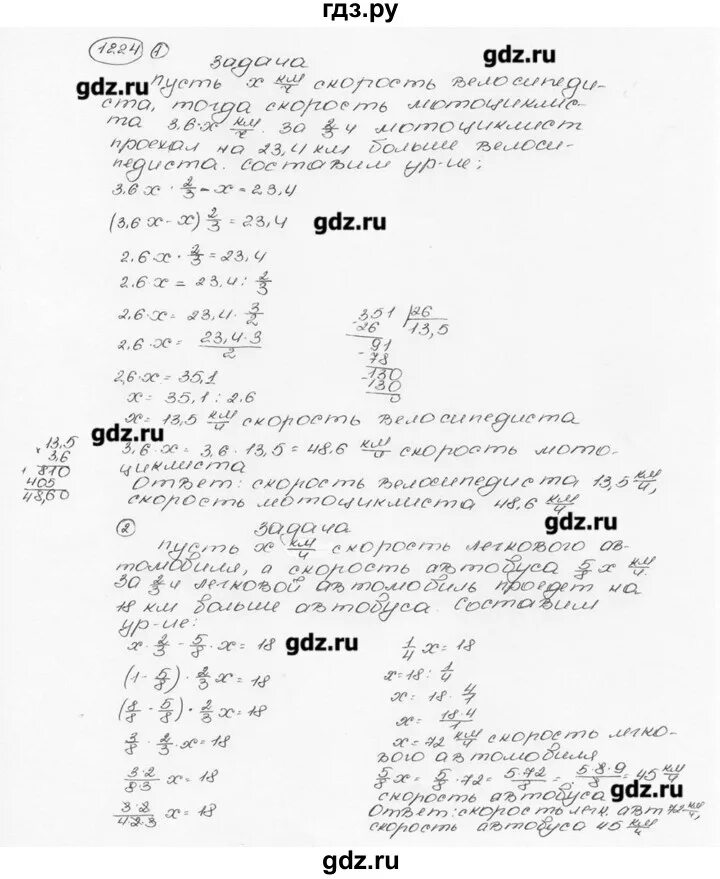 гдз.ру
1224 1
задача
gdz.ru
gdz.ru
пусть x км/ч скорость велосипеди-
ста, тогда скорость мотоциклис-
та 3,6·x км/ч. за 2/3 ч мотоциклист
проехал на 23,4 км больше велоси-
педиста. составим ур-ие:
3,6 x · 2/3 - x = 23,4
(3,6 x - x) 2/3 = 23,4
gdz.ru
2,6 x · 2/3 = 23,4
2,6 x = 23,4 : 2/3
2,6 x = 23,4 · 3/2
2,6 · x = 23,4·3/2
2,6·x = 35,1
x = 35,1 : 2,6
351 26
- 26 13,5
91
- 78
130
- 130
0
x = 13,5 км/ч скорость велосипедиста
gdz.ru
3,6·x = 3,6·13,5 = 48,6 км/ч скорость мото-
циклиста
13,5
× 3,6
810
405
48,60
Ответ: скорость велосипедиста 13,5 км/ч,
скорость мотоциклиста 48,6 км/ч
gdz.ru
2 задача
пусть x км/ч скорость легкового ав-
томобиля, а скорость автобуса 5/8 x км/ч.
За 2/3 ч легковой автомобиль проедет на
18 км больше автобуса. Составим
ур-ие:
x · 2/3 - 5/8 · x = 18
gdz.ru
(1 - 5/8) · 2/3 x = 18
(8/8 - 5/8) · 2/3 x = 18
3/8 · 2/3 x = 18
3·2/8·3 x = 18
3·2/4·2·3 x = 18
1/4 x = 18
x = 18 : 1/4
x = 18 · 4/1
x = 18·4/1
x = 72 км/ч скорость легко-
вого автомобиля
5/8 x = 5/8 · 72 = 5·72/8 = 5·8·9/8 = 45 км/ч
скорость автобуса
gdz.ru
Ответ: скорость легк. авт 72 км/ч,
скорость автобуса 45 км/ч
gdz.ru